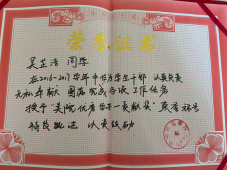 荣誉证书
同学
在2016-2017学年中作为学生干部 认真负责
无私奉献 圆满完成各项工作任务
授予"美院优秀学干—贡献奖"荣誉称号
特发此证 以资鼓励